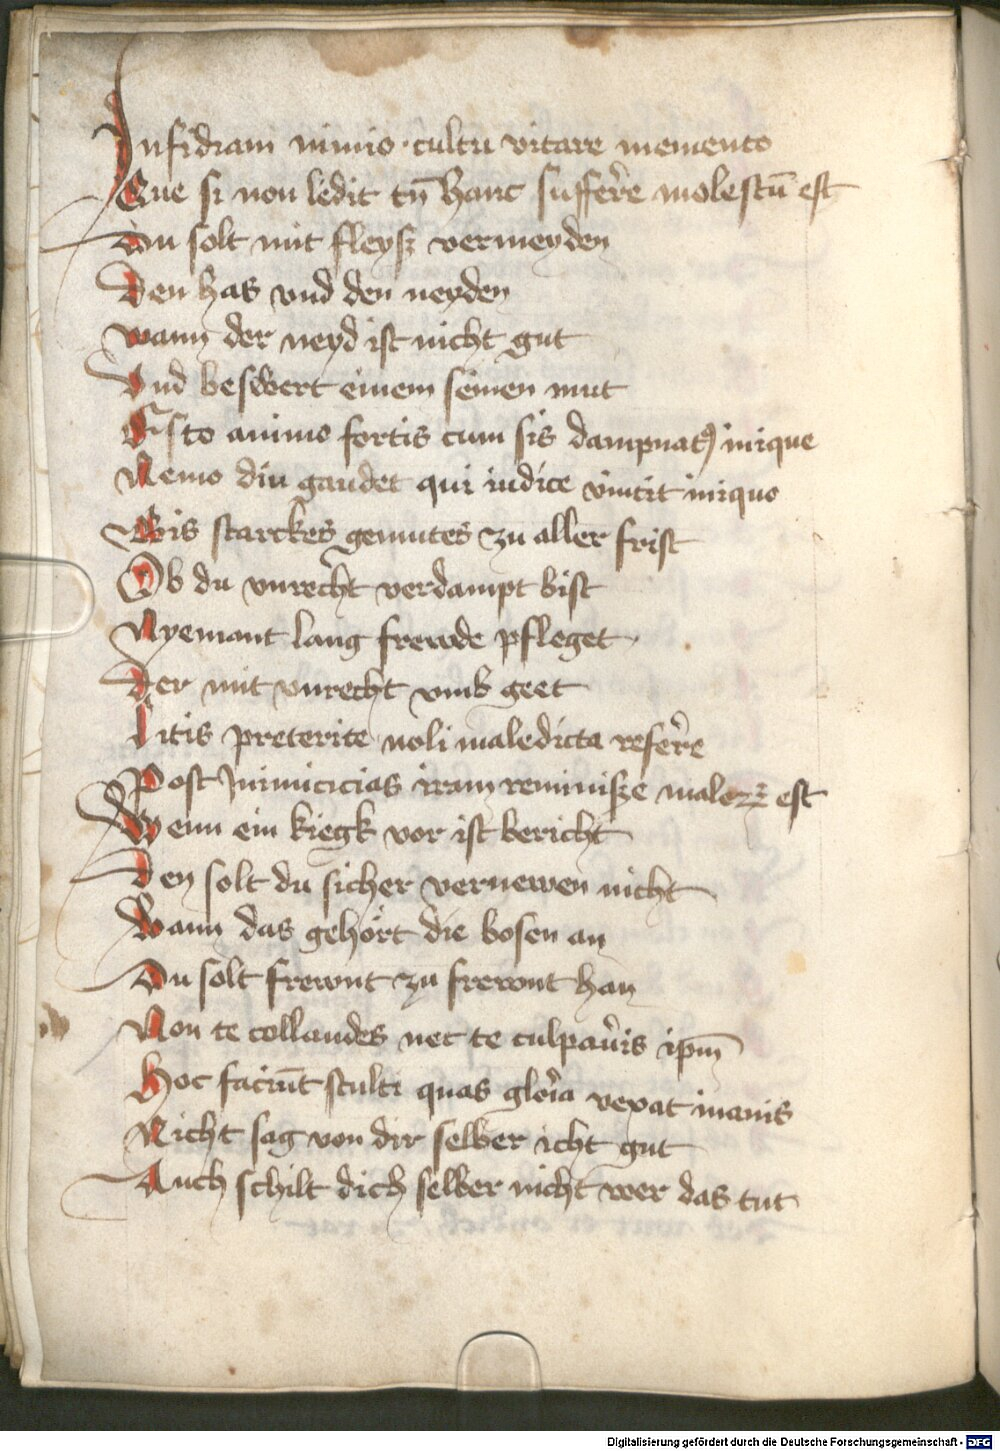 Jnsidiam nimio cultu vitare memento
Que si non ledit tn̄ hanc suffer̉e molestū est
Du solt mit fleysz vermeyden
Den has vnd den neyden
wann der neyd ist nicht gut
Vnd beswert einem seinen mut
Esto animo fortis cum sis dampnatꝰ inique
Nemo diu gaudet qui iudice vincit iniquo
Bis starckes gemutes zu aller frist
Ob du vnrecht verdampt bist
Nyemant lang frewde pfleget
Der mit vnrecht vmb geet
Litis preterite noli maledicta refer̉e
Post Jnimicicias iram reminisze maloꝝ est
Wenn ein kiegk vor ist bericht
Den solt du sicher vernewen nicht
Wann das gehört die bosen an
Du solt frewnt zu frewnt han
Non te collaudes nec te culpau̓is ipm̄
Hoc faciūt stulti quas glor̉ia vexat inanis
Nicht sag von dir selber icht gut
Auch schilt dich selber nicht wer das tut
Digitalisierung gefördert durch die Deutsche Forschungsgemeinschaft - DFG